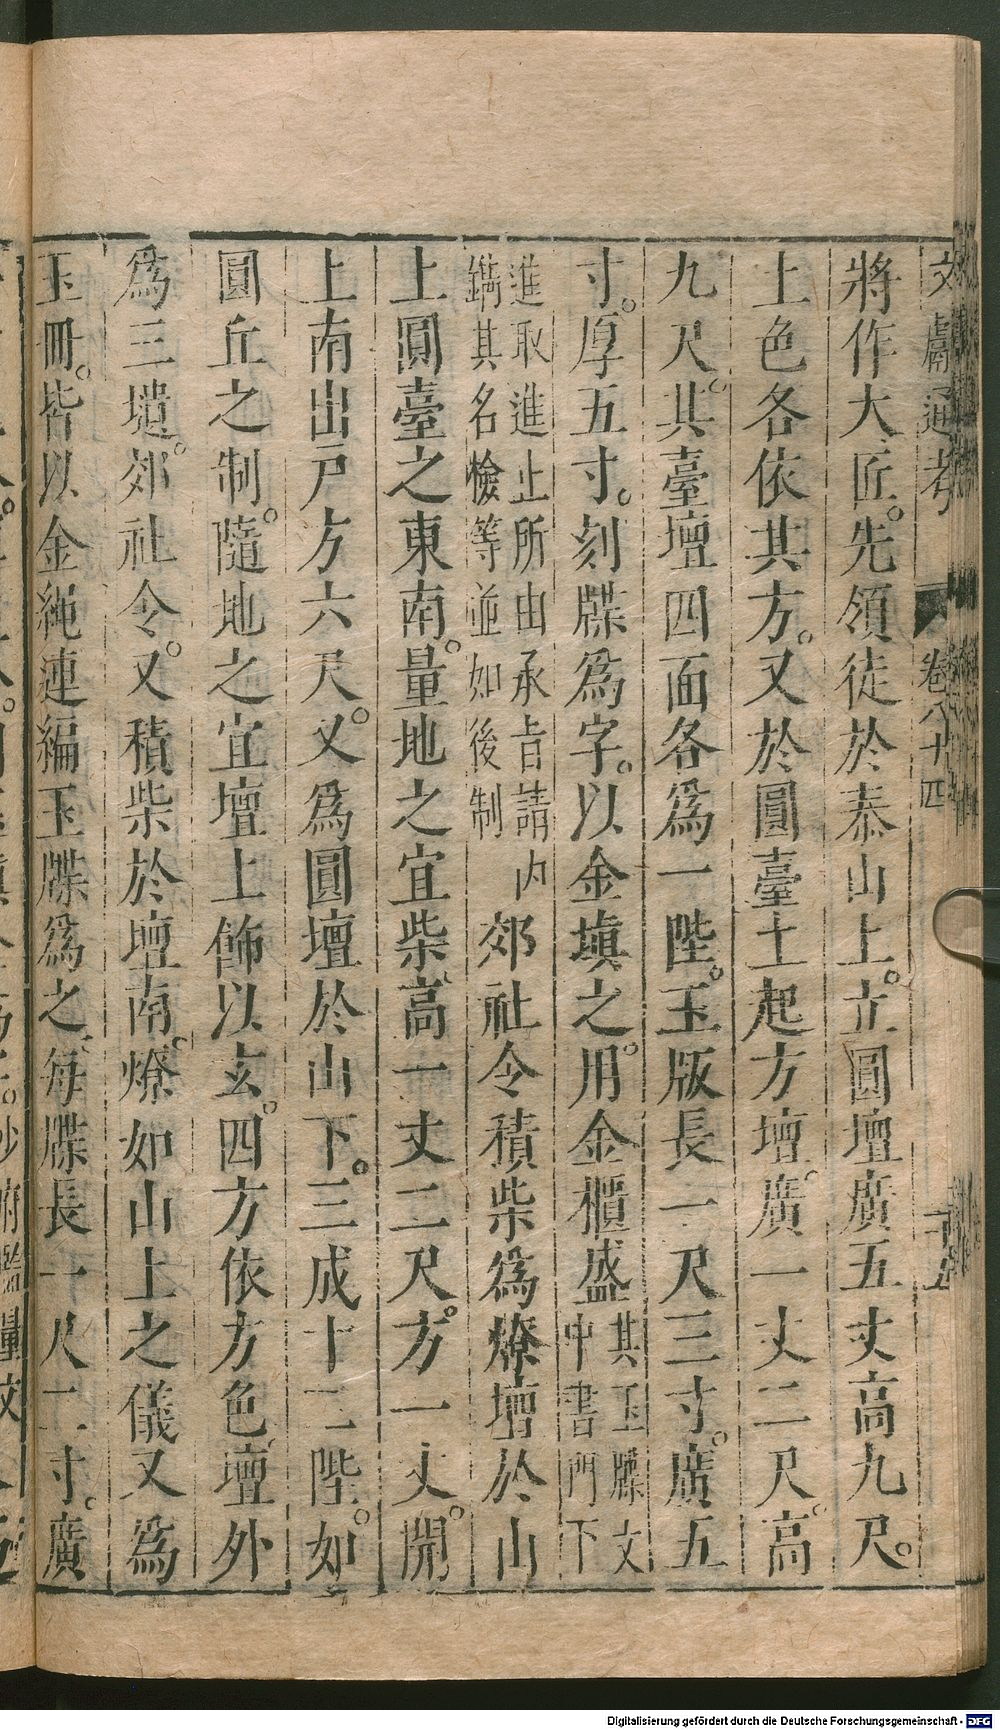 文獻通考 卷八十四
將作大匠。先領徒於泰山上。立圓壇廣五丈高九尺。
土色各依其方。又於圓臺上起方壇。廣一丈二尺。高
九尺。其臺壇四面各為一陛。玉版長一尺三寸。廣五
寸。厚五寸。刻牒為字。以金塡之。用金櫃盛其玉牒文中書門下
進取進止所由承旨請內鐫其名檢等並如後制郊社令積柴為燎壇於山
上圓臺之東南。量地之宜柴高一丈二尺。方一丈。開
上南出戶方六尺。又為圓壇於山下。三成十二陛。如
圓丘之制。隨地之宜壇上飾以玄。四方依方色壇外
為三壝。郊社令。又積柴於壇南。燎如山上之儀又為
玉冊。皆以金繩連編玉牒為之。每牒長一尺二寸。廣
Digitalisierung gefördert durch die Deutsche Forschungsgemeinschaft - DFG